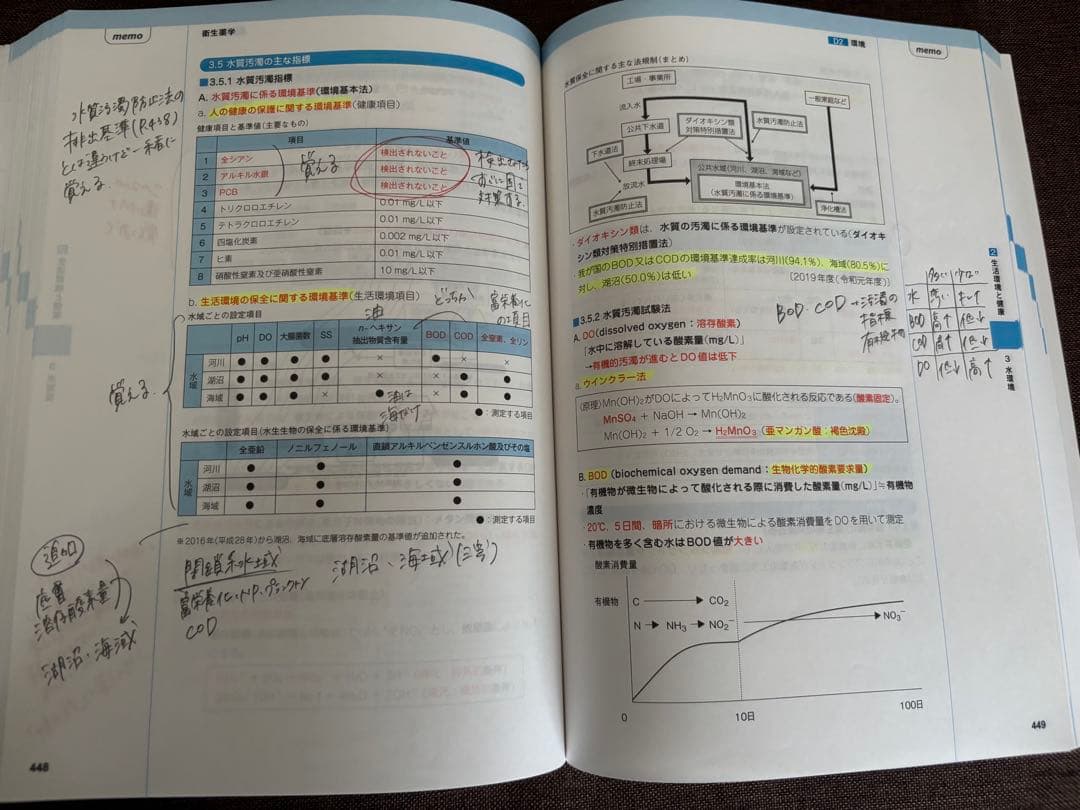 memo
衛生薬学
3.5 水質汚濁の主な指標
■3.5.1 水質汚濁指標
A. 水質汚濁に係る環境基準(環境基本法)
a. 人の健康の保護に関する環境基準(健康項目)
健康項目と基準値(主要なもの)
項目 基準値
1 全シアン 検出されないこと
2 アルキル水銀 検出されないこと
3 PCB 検出されないこと
4 トリクロロエチレン 0.01 mg/L以下
5 テトラクロロエチレン 0.01 mg/L以下
6 四塩化炭素 0.002 mg/L以下
7 ヒ素 0.01 mg/L以下
8 硝酸性窒素及び亜硝酸性窒素 10 mg/L以下
水質汚濁防止法の
排出基準(P.458)
とは違うけど一緒に
覚える
覚える
b. 生活環境の保全に関する環境基準(生活環境項目)
どっちか
富栄養化
の項目
水域ごとの設定項目
油
pH DO 大腸菌数 SS n-ヘキサン抽出物質含有量 BOD COD 全窒素、全リン
水域
河川 ● ● ● ● × ● × ×
湖沼 ● ● ● ● × × ● ●
海域 ● ● ● × ● × ● ●
●:測定する項目
覚える
油は
海だけ
水域ごとの設定項目(水生生物の保全に係る環境基準)
全亜鉛 ノニルフェノール 直鎖アルキルベンゼンスルホン酸及びその塩
水域
河川 ● ● ●
湖沼 ● ● ●
海域 ● ● ●
●:測定する項目
※2016年(平成28年)から湖沼、海域に底層溶存酸素量の基準値が追加された。
追加
溶存酸素量
湖沼・海域
閉鎖系水域
湖沼・海域
COD
448
D2 環境
memo
水質保全に関する主な法規制(まとめ)
工場・事業所
一般家庭など
流入水
公共下水道
ダイオキシン類
対策特別措置法
水質汚濁防止法
下水道法
終末処理場
公共水域(河川、湖沼、海域など)
環境基本法
(水質汚濁に係る環境基準)
放流水
水質汚濁防止法
浄化槽法
・ダイオキシン類は、水質の汚濁に係る環境基準が設定されている(ダイオキ
シン類対策特別措置法)
・我が国のBOD又はCODの環境基準達成率は河川(94.1%)、海域(80.5%)に
対し、湖沼(50.0%)は低い
〔2019年度(令和元年度)〕
■3.5.2 水質汚濁試験法
BOD・COD→汚濁の
指標
A. DO(dissolved oxygen:溶存酸素)
「水中に溶解している酸素量(mg/L)」
→有機的汚濁が進むとDO値は低下
a. ウインクラー法
(原理)Mn(OH)₂がDOによってH₂MnO₃に酸化される反応である(酸素固定)。
MnSO₄ + NaOH → Mn(OH)₂
Mn(OH)₂ + 1/2 O₂ → H₂MnO₃(亜マンガン酸:褐色沈殿)
B. BOD(biochemical oxygen demand:生物化学的酸素要求量)
・「有機物が微生物によって酸化される際に消費した酸素量(mg/L)」≒有機物
濃度
・20℃、5日間、暗所における微生物による酸素消費量をDOを用いて測定
・有機物を多く含む水はBOD値が大きい
酸素消費量
有機物 C → CO₂
N → NH₃ → NO₂⁻ → NO₃⁻
0 10日 100日
BOD 高↑ 低↓
COD 高↑ 低↓
DO 低↓ 高↑
2 生活環境と健康
3 水環境
449